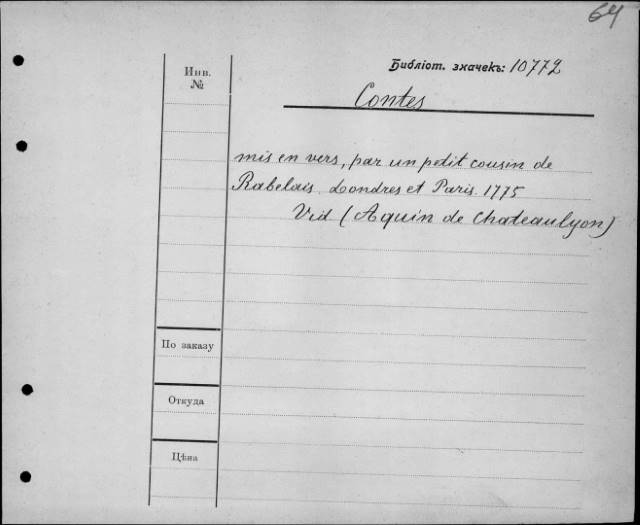 64
Библіот. значекъ: 10772
Инв.
№
Contes
mis en vers, par un petit cousin de
Rabelais. Londres et Paris. 1775
Vid (Aquin de Chateaulyon)
По заказу
Откуда
Цѣна